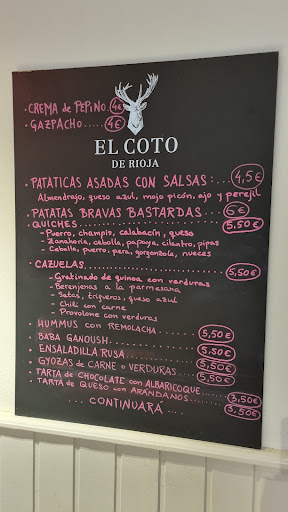 · CREMA de PEPINO. 4€
· GAZPACHO..... 4€
EL COTO
DE RIOJA
· PATATICAS ASADAS CON SALSAS:... 4,5€
Almendrajo, queso azul, mojo picón, ajo y perejil
· PATATAS BRAVAS BASTARDAS... 5€
· QUICHES............ 5,50€
- Puerro, champis, calabacín, queso
- Zanahoria, cebolla, papaya, cilantro, pipas
- Cebolla, puerro, pera, gorgonzola, nueces
· CAZUELAS............ 5,50€
- Gratinado de quinoa con verduras
- Berenjenas a la parmesana
- Setas, trigueros, queso azul
- Chili con carne
- Provolone con verduras
· HUMMUS con REMOLACHA....... 5,50€
· BABA GANOUSH............ 5,50€
· ENSALADILLA RUSA.......... 5,50€
· GYOZAS de CARNE o VERDURAS.... 5,50€
· TARTA de CHOCOLATE con ALBARICOQUE... 3,50€
· TARTA de QUESO con ARÁNDANOS..... 3,50€
... CONTINUARÁ ....